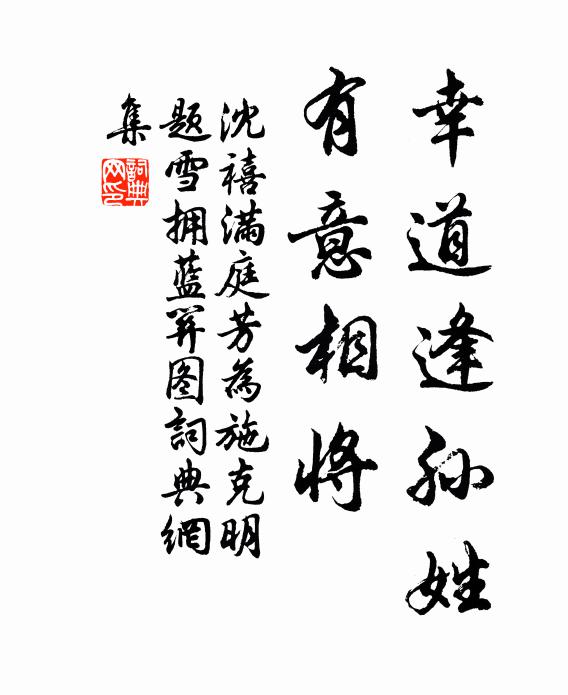 幸道逢孙姓
有意相将
沈禧满庭芳為施克明
题雪拥蓝関图詞典網
集
詞典
网印